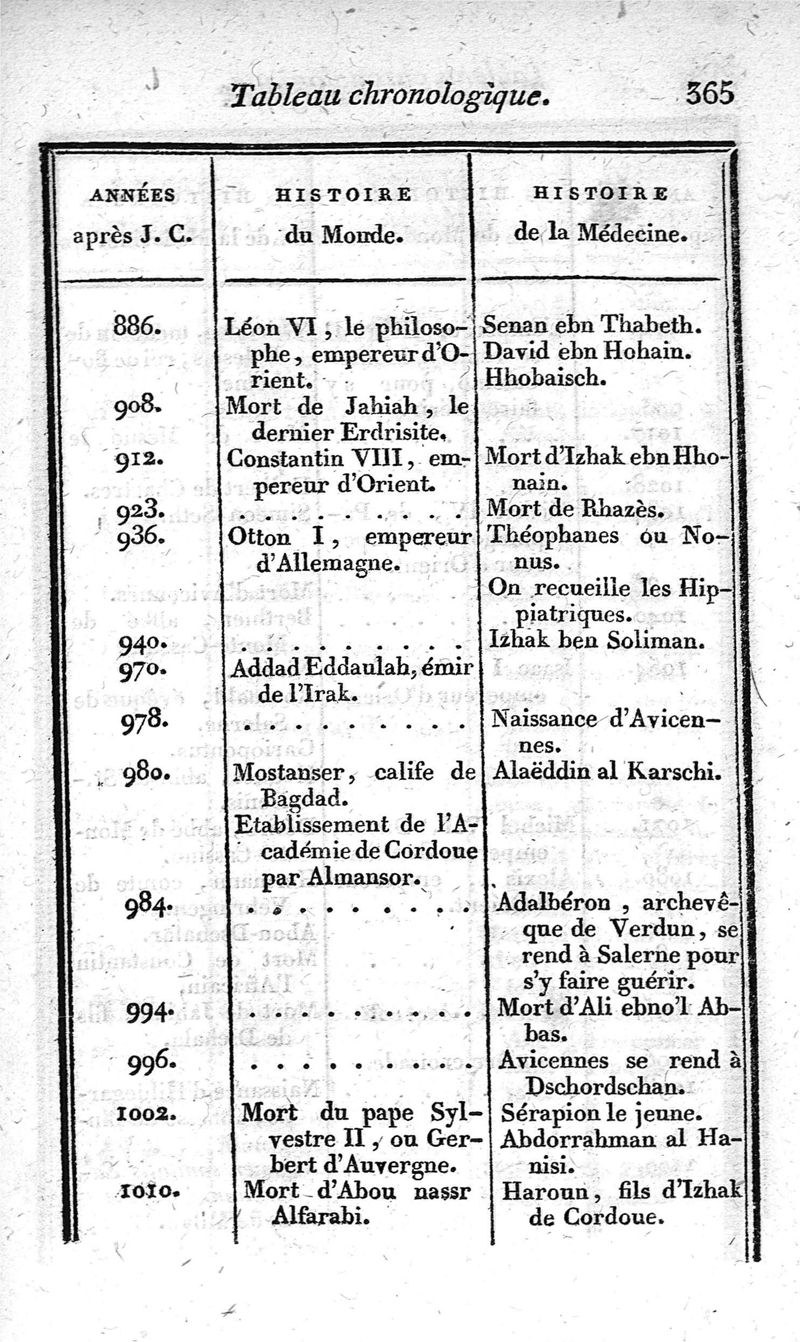 Tableau chronologique. 365
ANNÉES HISTOIRE HISTOIRE
après J. C. du Monde. de la Médecine.
886. Léon VI, le philoso- Senan ebn Thabeth.
phe, empereur d'O- David ebn Hohain.
rient. Hhobaisch.
908. Mort de Jahiah, le
dernier Erdrisite.
912. Constantin VIII, em- Mort d'Izhak ebn Hho-
pereur d'Orient. nain.
923. . . . . . . . . . Mort de Rhazès.
936. Otton I, empereur Théophanes ou No-
d'Allemagne. nus.
On recueille les Hip-
piatriques.
940. . . . . . . . . . Izhak ben Soliman.
970. Addad Eddaulah, émir
de l'Irak.
978. . . . . . . . . . Naissance d'Avicen-
nes.
980. Mostanser, calife de Alaëddin al Karschi.
Bagdad.
Etablissement de l'A-
cadémie de Cordoue
par Almansor.
984. . . . . . . . . . Adalbéron, archevê-
que de Verdun, se
rend à Salerne pour
s'y faire guérir.
994. . . . . . . . . . Mort d'Ali ebno'l Ab-
bas.
996. . . . . . . . . . Avicennes se rend à
Dschordschan.
1002. Mort du pape Syl- Sérapion le jeune.
vestre II, ou Ger- Abdorrahman al Ha-
bert d'Auvergne. nisi.
1010. Mort d'Abou nassr Haroun, fils d'Izhak
Alfarabi. de Cordoue.